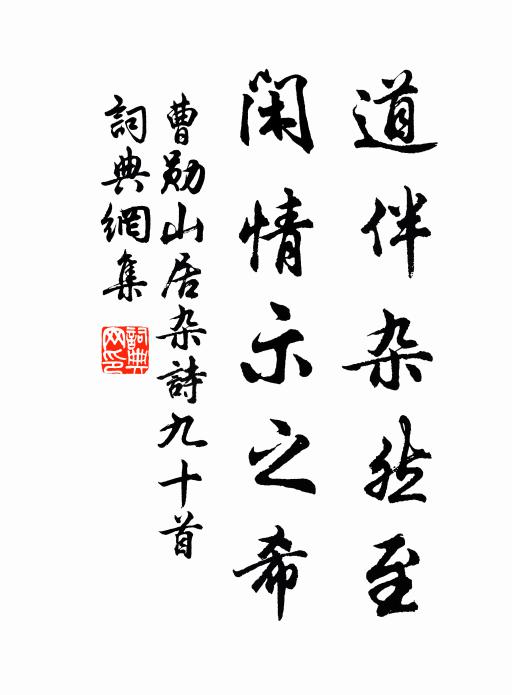 道伴杂然至
闲情示之希
曹勋山居杂詩九十首
詞典網集
詞典网印